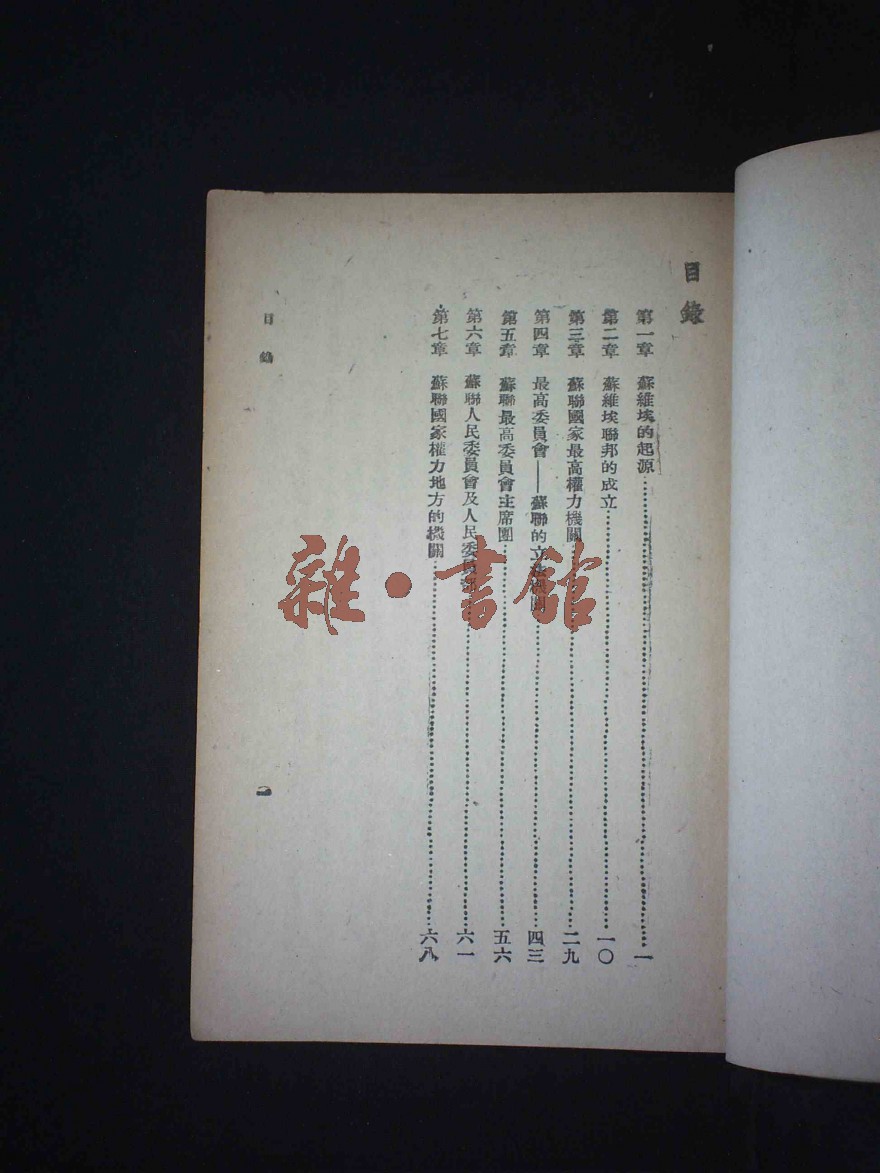 目錄
第一章 蘇維埃的起源……一
第二章 蘇維埃聯邦的成立……一〇
第三章 蘇聯國家最高權力機關……二九
第四章 最高委員會——蘇聯的立法機關……四三
第五章 蘇聯最高委員會主席團……五六
第六章 蘇聯人民委員會及人民委員部……六一
第七章 蘇聯國家權力地方的機關……六八
目錄
一
雜·書館